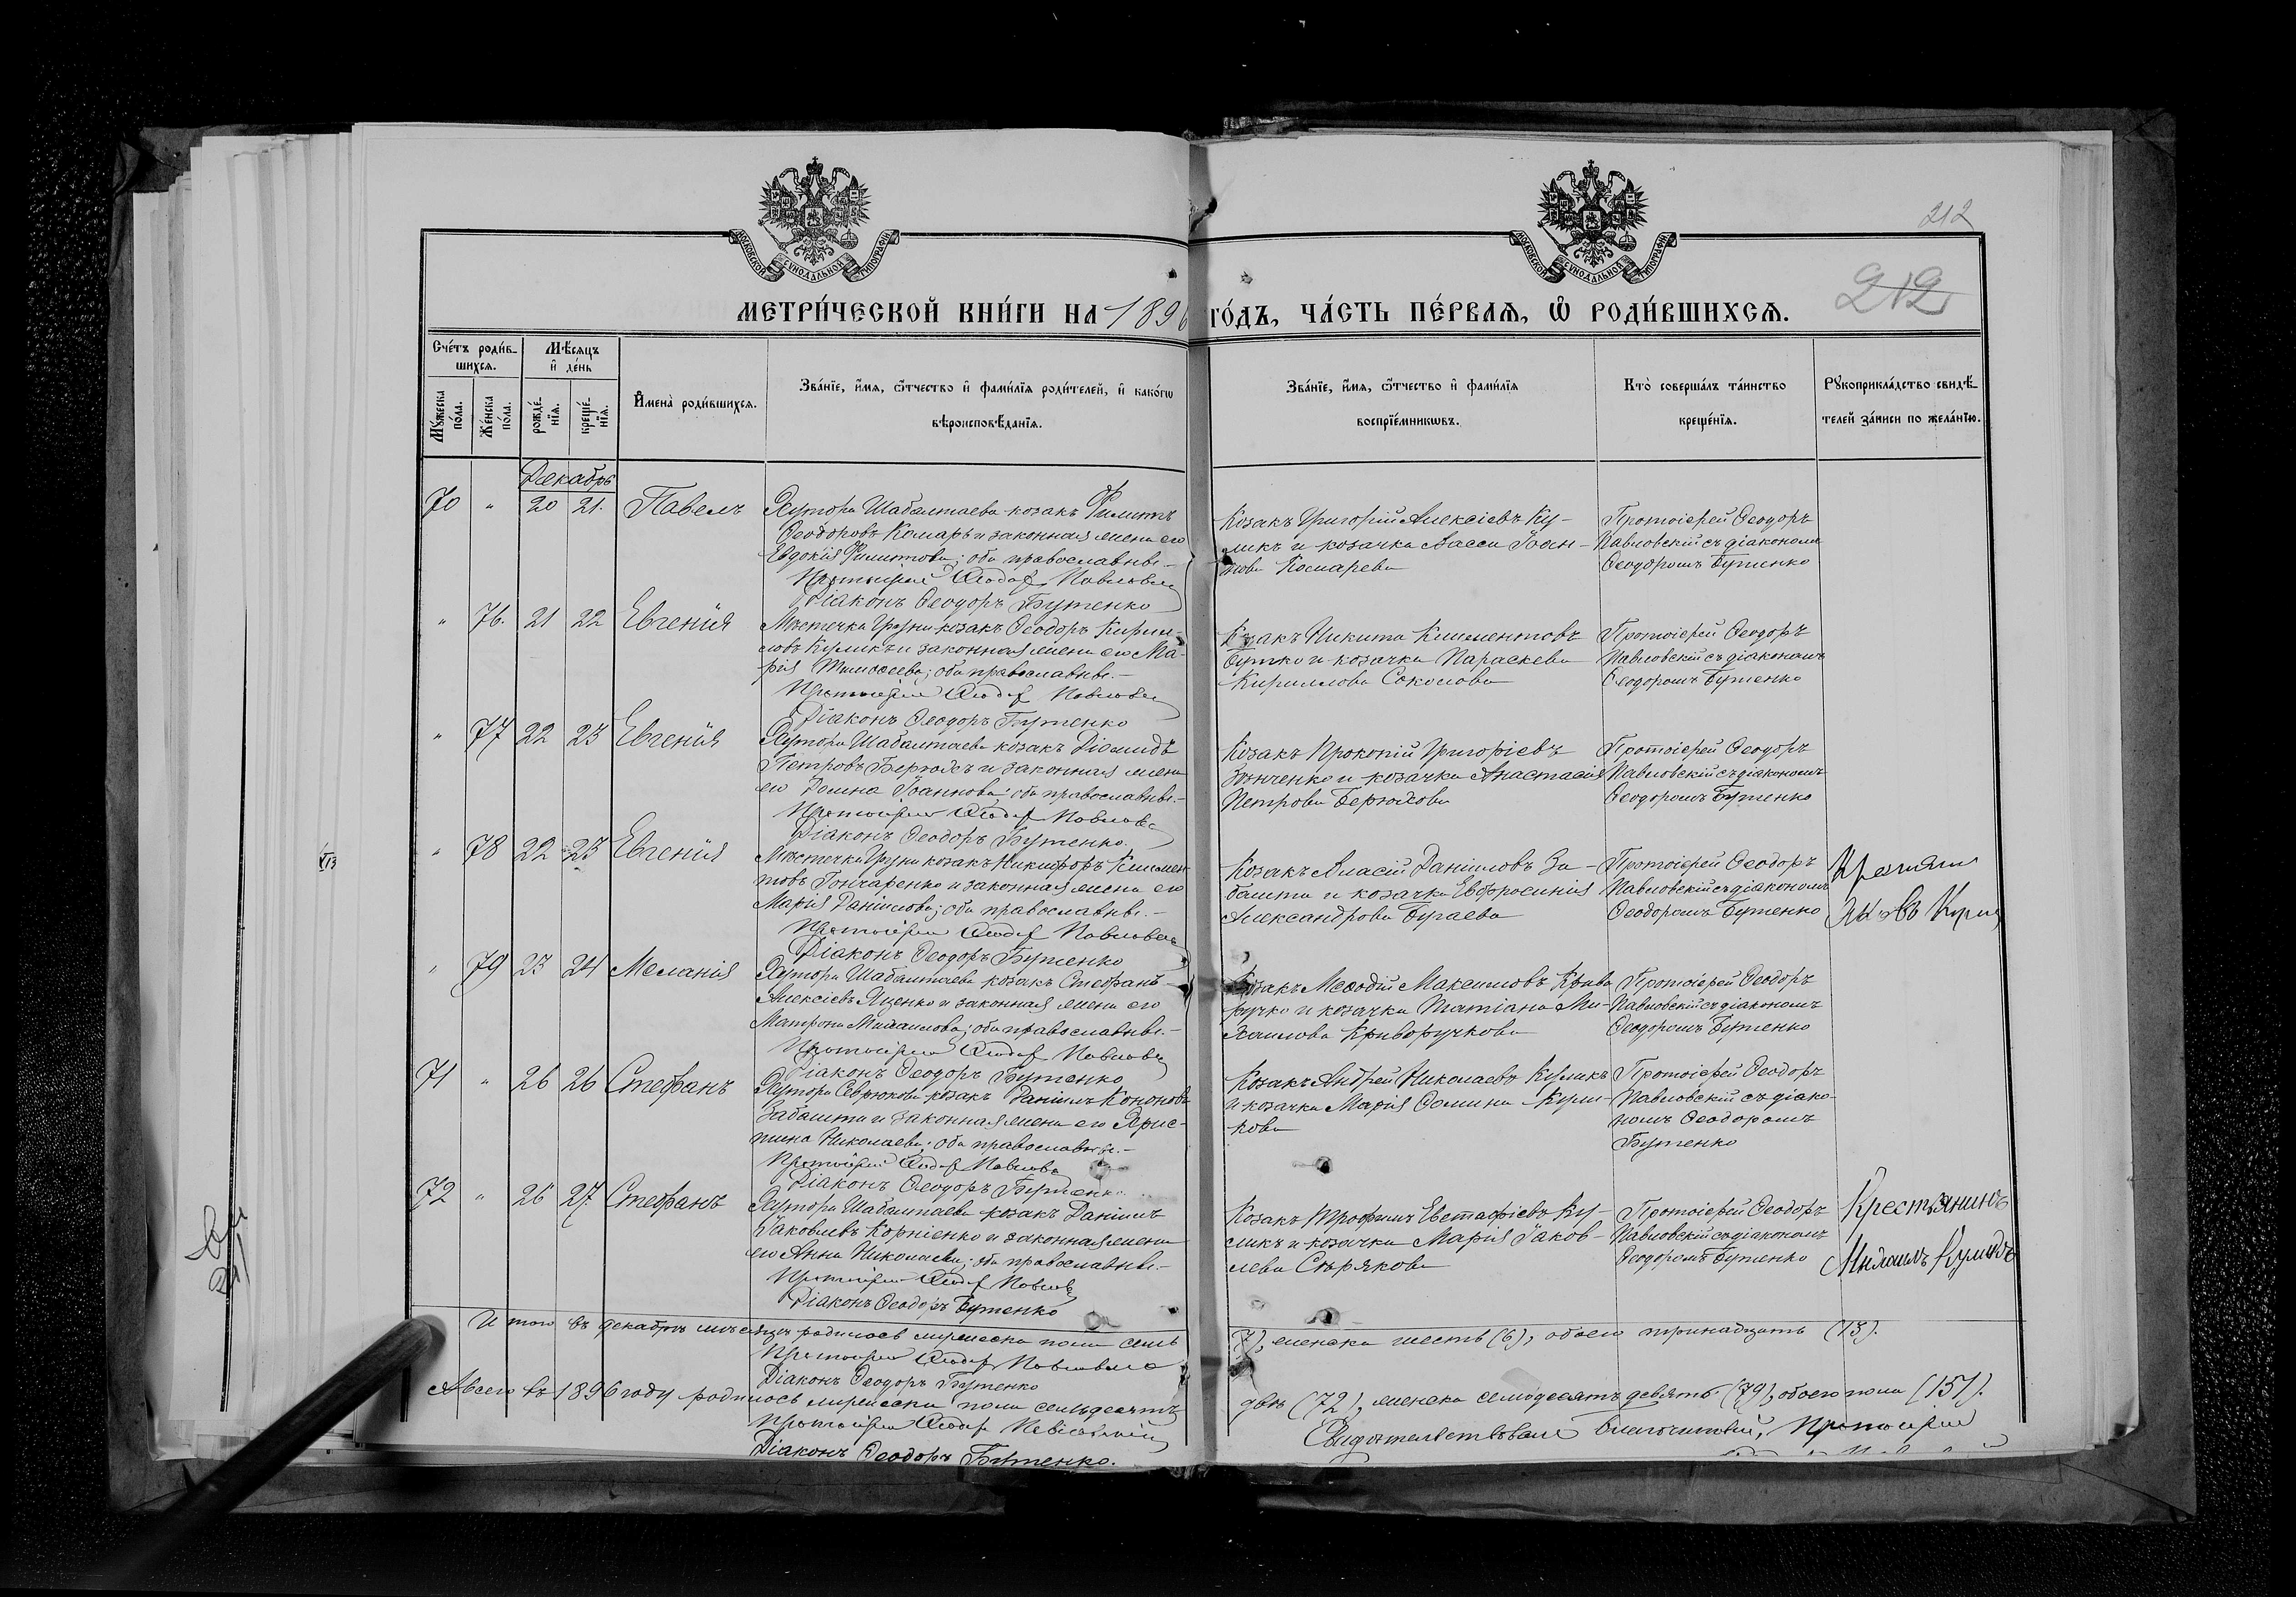 212
212
МОСКОВСКОЙ СѴНОДАЛЬНОЙ ТИПОГРАФІИ
МОСКОВСКОЙ СѴНОДАЛЬНОЙ ТИПОГРАФІИ
МЕТРИ́ЧЕСКОЙ КНИ́ГИ НА 1896 ГО́ДЪ, ЧА́СТЬ ПЕ́РВАѦ, Ѽ РОДИ́ВШИХСѦ.
Сче́тъ роди́в-
шихсѧ.
Мѣ́сѧцъ
и҆ де́нь
Мꙋ́жеска
по́ла.
Же́нска
по́ла.
рожде́-
нїѧ.
креще́-
нїѧ.
И҆мена̀ роди́вшихсѧ.
Зва́нїе, и҆́мѧ, ѻ҆́тчество и҆ фами́лїѧ роди́телей, и҆ како́гѡ
вѣроисповѣ́данїѧ.
Зва́нїе, и҆́мѧ, ѻ҆́тчество и҆ фами́лїѧ
воспрїе́мникѡвъ.
Кто̀ соверша́лъ та́инство
креще́нїѧ.
Рꙋкоприкла́дство свидѣ́-
телей за́писи по жела́нїю.
Декабрь
70 " 20 21. Павелъ
Хутора Шабалтаева козакъ Филиппъ
Ѳеодоровъ Комаръ и законная жена его
Евдокія Филиппова; оба православные.-
Протоіерей Ѳеодоръ Павловскій
Діаконъ Ѳеодоръ Бутенко
Козакъ Григорій Алексіевъ Ку-
ликъ и козачка Васса Іоан-
нова Комарева
Протоіерей Ѳеодоръ
Павловскій съ діакономъ
Ѳеодоромъ Бутенко
" 76. 21 22 Евгенія
Мѣстечка Груни козакъ Ѳеодоръ Кирил-
ловъ Куликъ и законная жена его Ма-
рія Тимоѳеева; оба православные.-
Протоіерей Ѳеодоръ Павловскій
Діаконъ Ѳеодоръ Бутенко
Козакъ Никита Климентовъ
Бутко и козачка Параскева
Кириллова Соколова
Протоіерей Ѳеодоръ
Павловскій съ діакономъ
Ѳеодоромъ Бутенко
" 77 22 23 Евгенія
Хутора Шабалтаева козакъ Діомидъ
Петровъ и законная жена
его Домна Іоаннова; оба православные.-
Протоіерей Ѳеодоръ Павловскій
Діаконъ Ѳеодоръ Бутенко.
Козакъ Прокопій Григоріевъ
и козачка Анастасія
Петрова
Протоіерей Ѳеодоръ
Павловскій съ діакономъ
Ѳеодоромъ Бутенко
" 78 22 23 Евгенія
Мѣстечка Груни козакъ Никифоръ Климен-
товъ Гончаренко и законная жена его
Марія Даніилова; оба православные.-
Протоіерей Ѳеодоръ Павловскій
Діаконъ Ѳеодоръ Бутенко
Козакъ Власій Даніиловъ За-
башта и козачка Евфросинія
Александрова Бугаева
Протоіерей Ѳеодоръ
Павловскій съ діакономъ
Ѳеодоромъ Бутенко
" 79 23 24 Меланія
Хутора Шабалтаева козакъ Стефанъ
Алексіевъ Яценко и законная жена его
Матрона Михаилова; оба православные.-
Протоіерей Ѳеодоръ Павловскій
Діаконъ Ѳеодоръ Бутенко
Козакъ Меѳодій Максимовъ Криво
ручко и козачка Татіана Ми-
хаилова Криворучкова
Протоіерей Ѳеодоръ
Павловскій съ діакономъ
Ѳеодоромъ Бутенко
71 " 26 26 Стефанъ
Хутора Северюкова козакъ Даніилъ Кононовъ
Забашта и законная жена его Хрис-
тина Николаева; оба православные.-
Протоіерей Ѳеодоръ Павловскій
Діаконъ Ѳеодоръ Бутенко
Козакъ Андрей Николаевъ Куликъ
и козачка Марія Ѳомина Кули-
кова
Протоіерей Ѳеодоръ
Павловскій съ діако-
номъ Ѳеодоромъ
Бутенко
72 " 26 27. Стефанъ
Хутора Шабалтаева козакъ Даніилъ
Іаковлевъ Корніенко и законная жена
его Анна Николаева; оба православные.-
Протоіерей Ѳеодоръ Павловскій
Діаконъ Ѳеодоръ Бутенко
Козакъ Трофимъ Евстафіевъ Ку-
ликъ и козачка Марія Іаков-
лева Сѣрякова
Протоіерей Ѳеодоръ
Павловскій съ діакономъ
Ѳеодоромъ Бутенко
Крестьянинъ
Михаилъ Куликъ
Итого въ декабрѣ мѣсяцѣ родилось мужеска пола семь (7), женска шесть (6), обоего тринадцать (13).
Протоіерей Ѳеодоръ Павловскій
Діаконъ Ѳеодоръ Бутенко
А всего въ 1896 году родилось мужеска пола семьдесятъ два (72), женска семьдесятъ девять (79), обоего пола (151).
Протоіерей Ѳеодоръ Павловскій
Діаконъ Ѳеодоръ Бутенко.
Свидѣтельствовалъ благочинный, Протоіерей